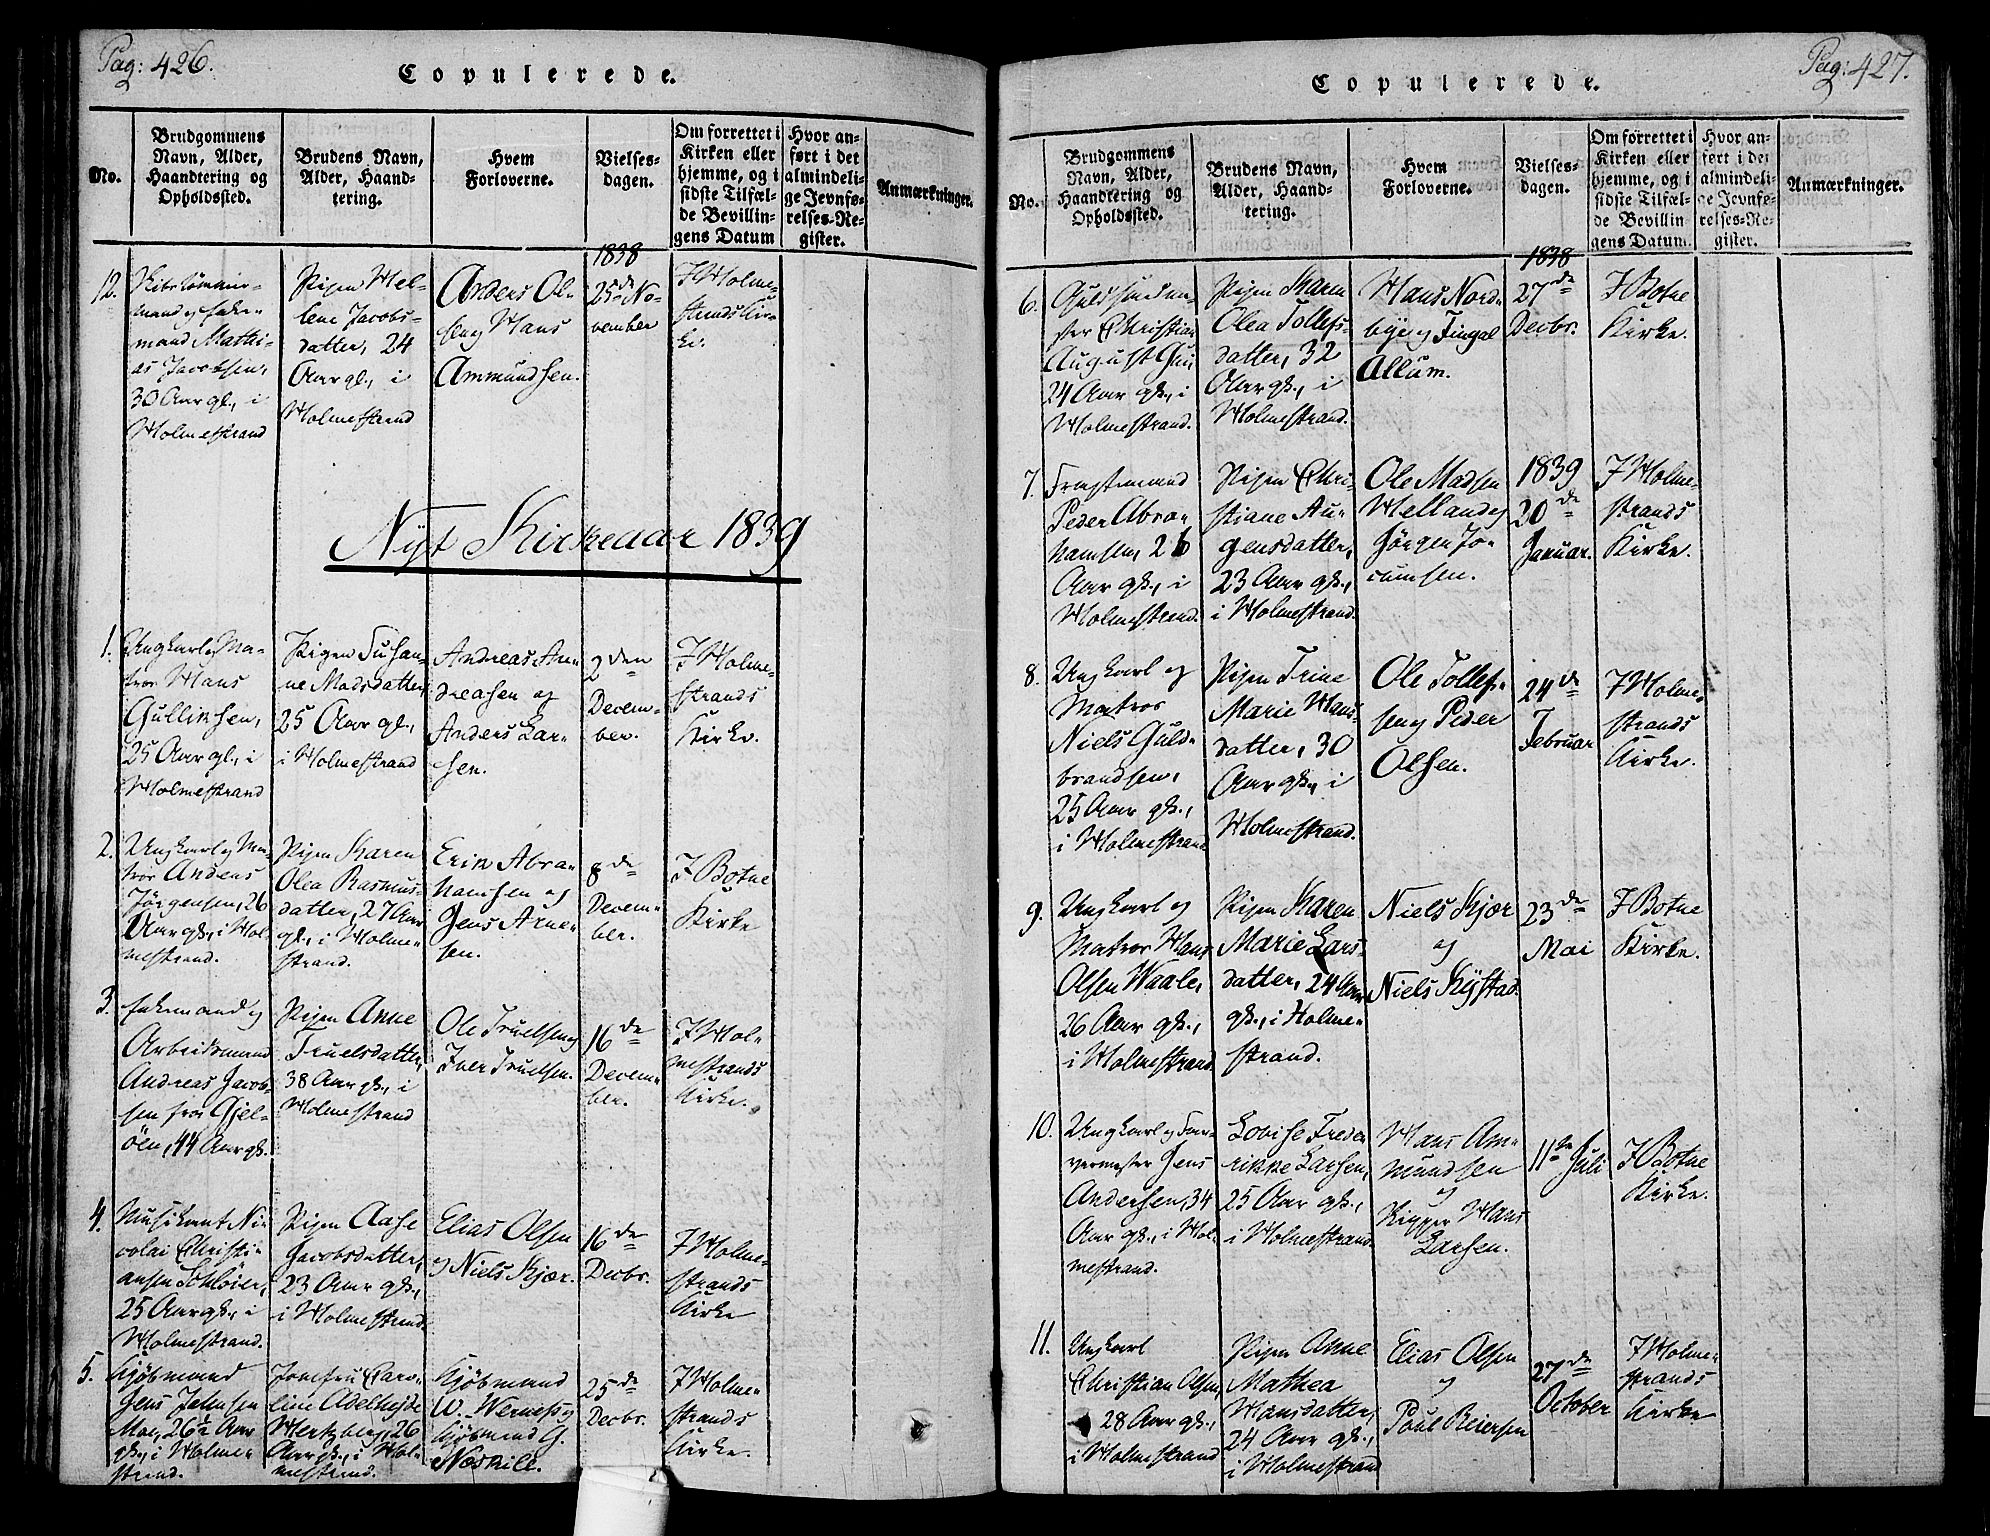 Pag: 426.
Copulerede.
No.
Brudgommens
Navn, Alder,
Haandtering og
Opholdssted.
Brudens Navn,
Alder, Haand-
tering.
Hvem
Forloverne.
Vielses-
dagen.
Om forrettet i
Kirken eller
hjemme, og i
sidste Tilfæl-
de Bevillin-
gens Datum
Hvor an-
ført i det
almindeli-
ge Jevnfø-
relses-Re-
gister.
Anmærkninger.
12.
mand og Enke-
mand Mathi-
as Jacobsen,
30 Aar gl., i
Holmestrand
Pigen Hel-
lene Jacobs-
datter, 24
Aar gl., i
Holmestrand
Anders Ol-
sen og Hans
Ammundsen.
1838
25de No-
vember
I Holme-
strands Kir-
ke.
Nyt Kirkeaar 1839
1.
Ungkarl og Ma-
tros Hans
Gulliksen,
25 Aar gl., i
Holmestrand
Pigen Susan-
ne Madsdatter,
25 Aar gl.,
i Holmestrand
Andreas An-
dreasen og
Anders Lar-
sen.
2den
Decem-
ber.
I Holme-
strands
Kirke.
2.
Ungkarl og Ma-
tros Anders
Jörgensen, 26
Aar gl., i Hol-
mestrand.
Pigen Karen
Olea Rasmus-
datter, 27 Aar
gl., i Holme-
strand.
Erik Abra-
hamsen og
Jens Arne-
sen.
8de
Decem-
ber.
I Botne
Kirke
3.
Enkemand og
Arbeidsmand
Andreas Jacob-
sen fra Gjel-
öen, 44 Aar gl.
Pigen Anne
Truelsdatter,
38 Aar gl., i
Holmestrand
Ole Truelsen og
Iver Truelsen.
16de
Decem-
ber.
I Hol-
mestrands
Kirke.
4.
Musikant Ni-
colai Christi-
ansen
25 Aar gl., i
Holmestrand.
Pigen Aase
Jacobsdatter,
23 Aar gl.,
i Holmestrand.
Elias Olsen
og Niels Kjær.
16de
Decbr.
I Holme-
strands
Kirke
5.
Kjöbmand
Jens Johnsen
Moe, 26½ Aar
gl., i Holme-
strand.
Jomfru Caro-
line Adelheyde
Hertzberg, 26
Aar gl., i Hol-
mestrand.
Kjöbmand
W. Werness og
Kjöbmand G.
25de
Decbr.
I Holme-
strands
Kirke.
Pag: 427.
Copulerede.
No.
Brudgommens
Navn, Alder,
Haandtering og
Opholdssted.
Brudens Navn,
Alder, Haand-
tering.
Hvem
Forloverne.
Vielses-
dagen.
Om forrettet i
Kirken eller
hjemme, og i
sidste Tilfæl-
de Bevillin-
gens Datum.
Hvor an-
ført i det
almindeli-
ge Jevnfø-
relses-Re-
gister.
Anmærkninger.
6.
Guldsmedme-
ster Christian
August
24 Aar gl., i
Holmestrand.
Pigen Karen
Olea Tollefs-
datter, 32
Aar gl., i
Holmestrand.
Hans Nord-
bye og Fingal
Allum.
1838
27de
Decbr.
I Botne
Kirke.
7.
Peder Abra-
hamsen, 26
Aar gl., i
Holmestrand.
Pigen Chri-
stiane Au-
gensdatter,
23 Aar gl.,
i Holmestrand.
Ole Madsen
Helland og
Jörgen Jo-
cumsen.
1839
20de
Januar.
I Holme-
strands
Kirke.
8.
Ungkarl og
Matros
Niels Guld-
brandsen,
25 Aar gl.,
i Holmestrand
Pigen Trine
Marie Hans-
datter, 30
Aar gl., i
Holmestrand.
Ole Tollef-
sen og Peder
Olsen.
24de
Februar
I Holme-
strands
Kirke.
9.
Ungkarl og
Matros Hans
Olsen Waale,
26 Aar gl.,
i Holmestrand.
Pigen Karen
Marie Lars-
datter, 24 Aar
gl., i Holme-
strand.
Niels Kjær
og
Niels Kystad.
23de
Mai
I Botne
Kirke.
10.
Ungkarl og Far-
vermester Jens
Andersen, 34
Aar gl., i Hol-
mestrand.
Lovise Frede-
rikke Larsen,
25 Aar gl.,
i Holmestrand.
Hans Am-
mundsen
og
Rigger Hans
Larsen.
11de Juli
I Botne
Kirke.
11.
Ungkarl
Christian Olsen,
28 Aar gl.,
i Holmestrand
Pigen Anne
Mathea
Hansdatter,
24 Aar gl.,
i Holmestrand
Elias Olsen
og
Paul Reiersen
27de
October
I Holme-
strands
Kirke